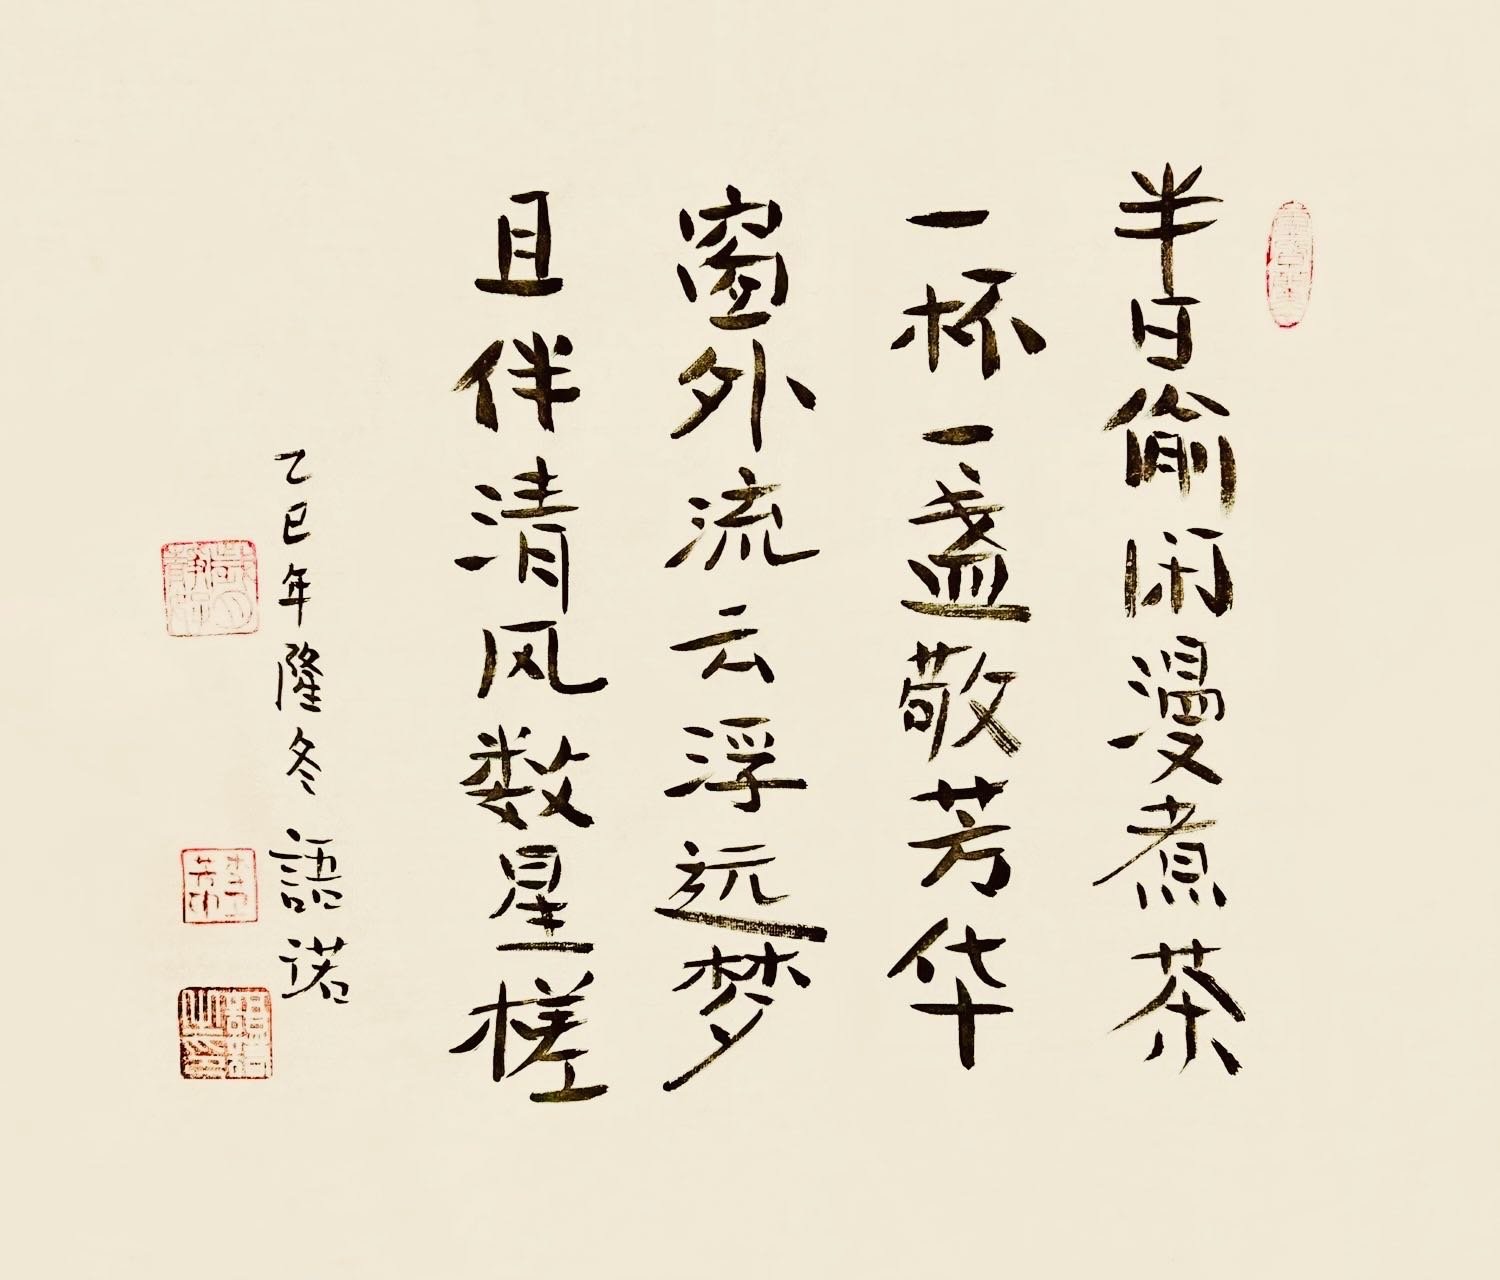 半日偷闲漫煮茶
一杯一盏敬芳华
窗外流云浮远梦
且伴清风数星槎
乙巳年隆冬 語诺